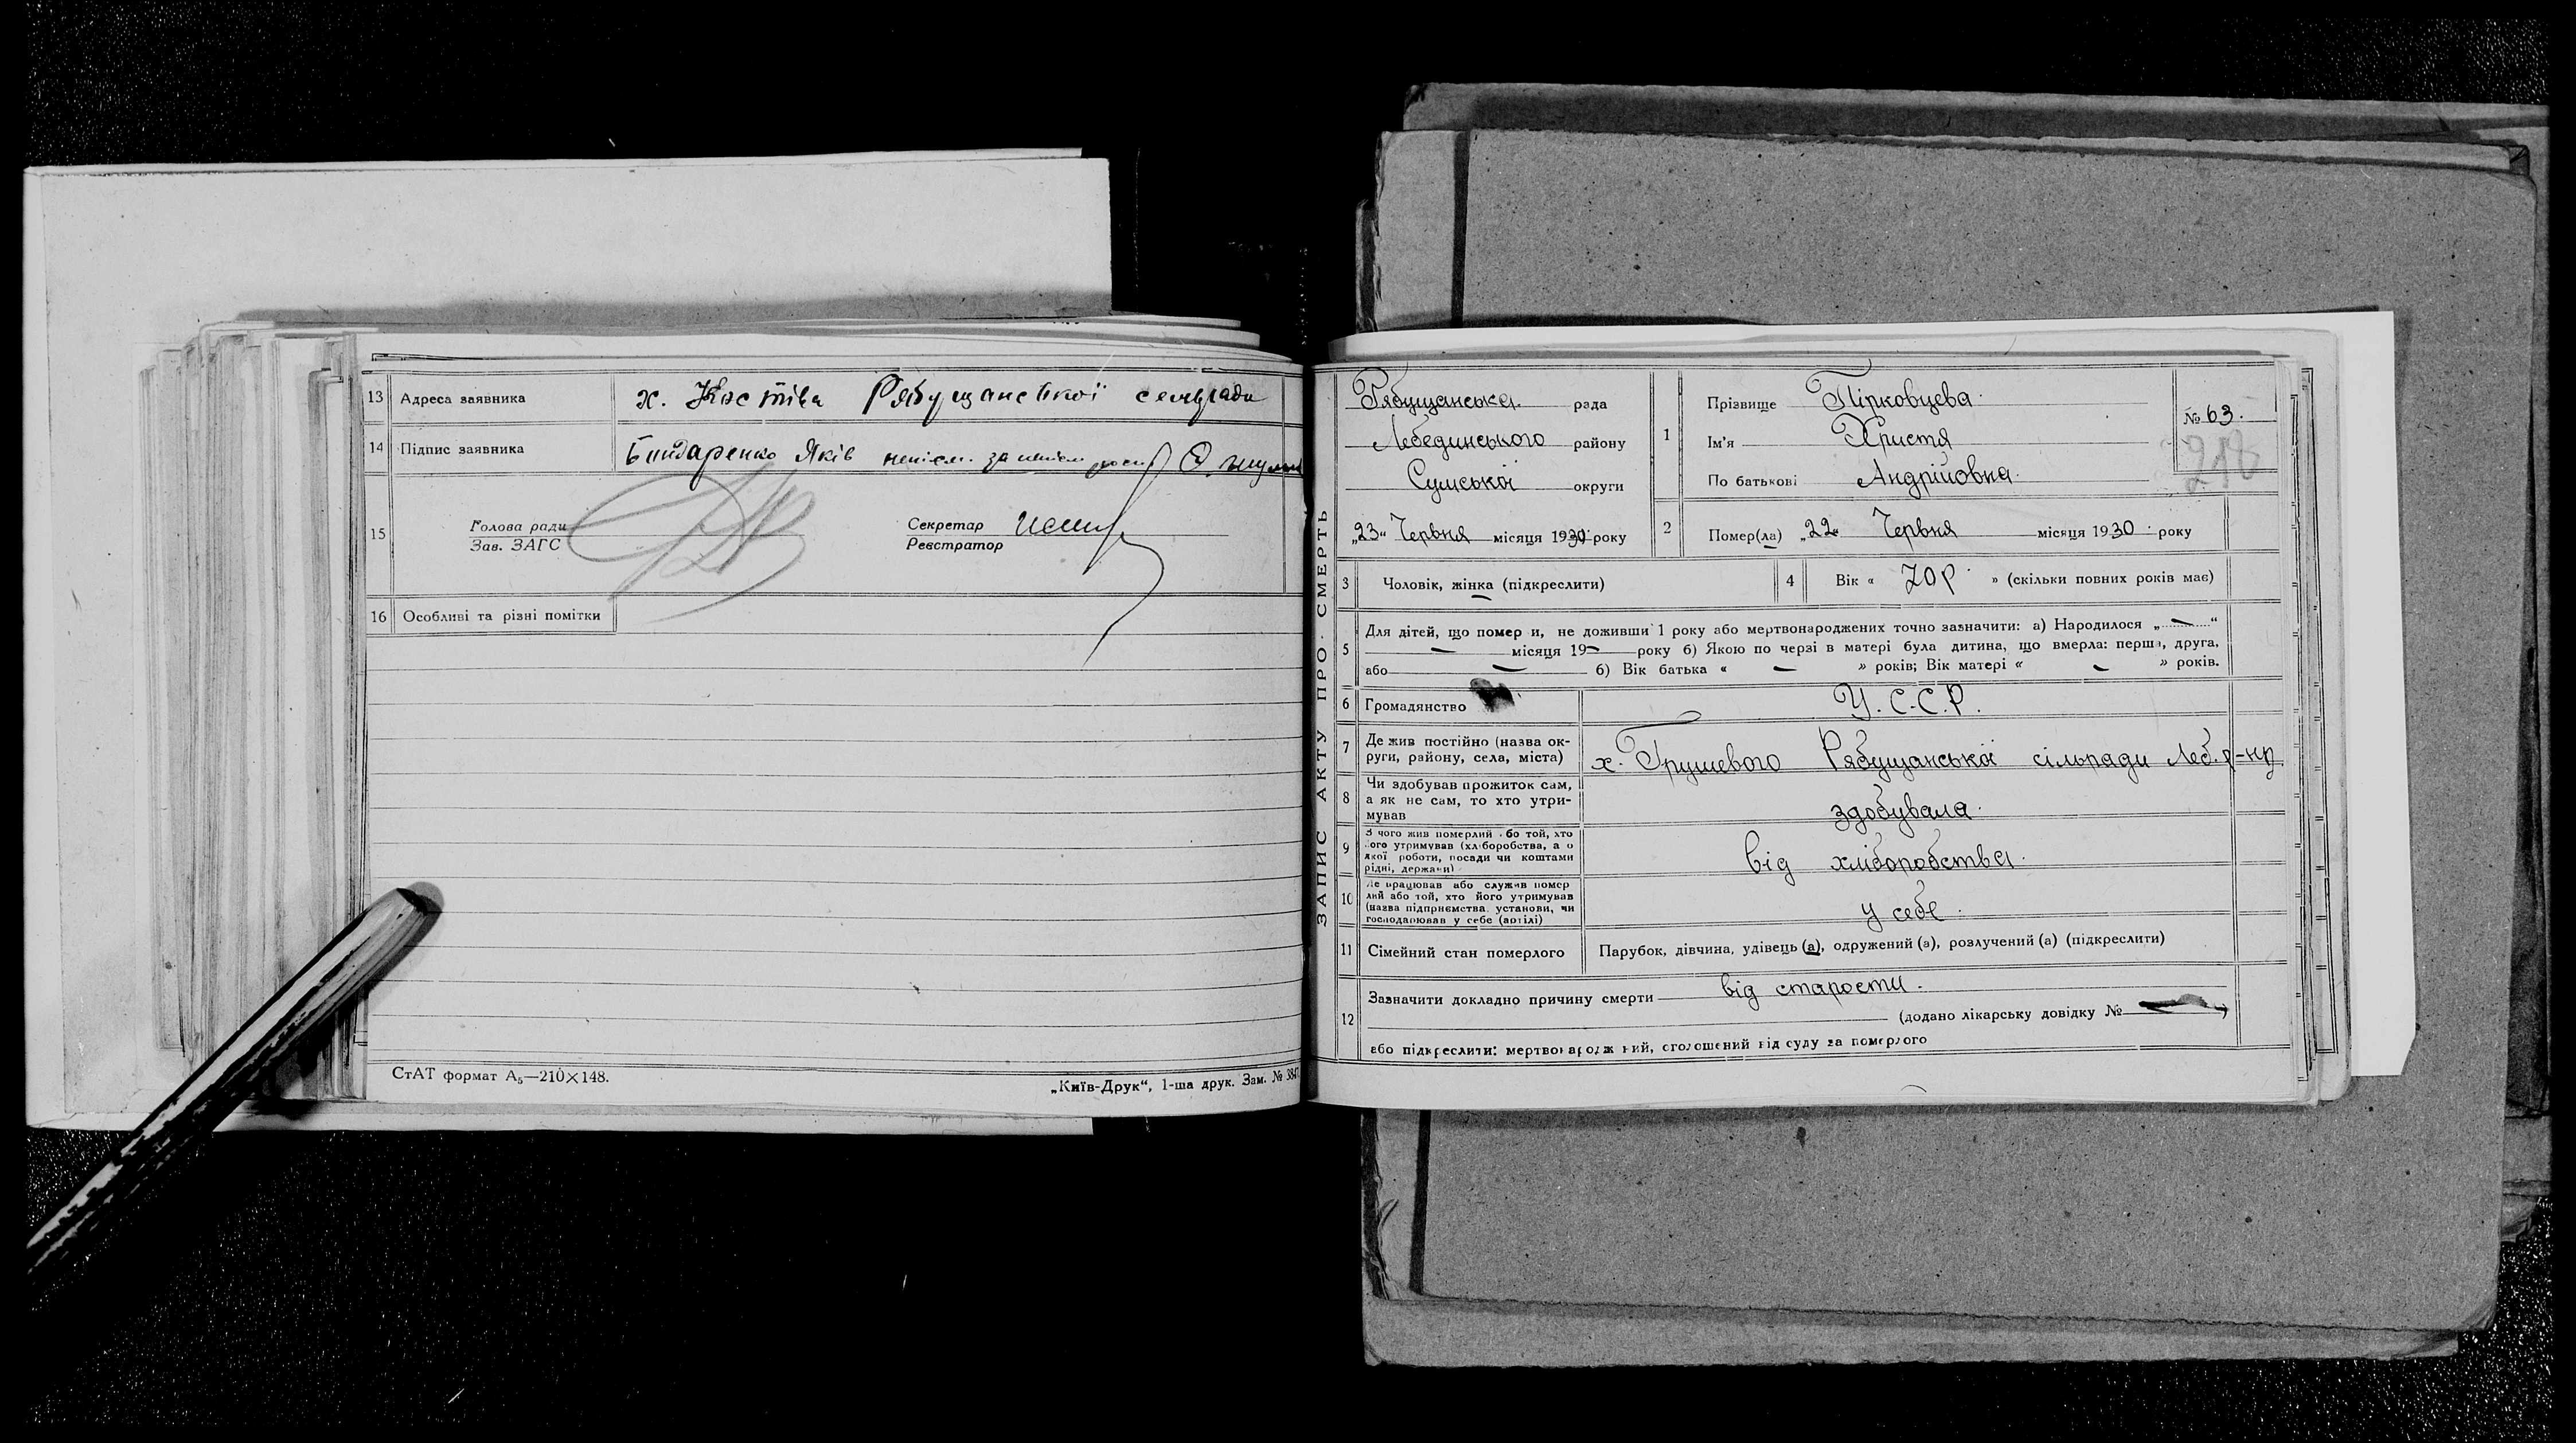 13 Адреса заявника х. Костіва Рябущанської сельради
14 Підпис заявника Бондаренко Яків непісм. за непісм
15 Голова ради
Зав. ЗАГС
Секретар
Реєстратор
16 Особливі та різні помітки
СтАТ формат А₅—210×148.
„Київ-Друк“, 1-ша друк. Зам. №
ЗАПИС АКТУ ПРО СМЕРТЬ
Рябущанська рада
Лебединського району
Сумської округи
„23“ Червня місяця 1930 року
1 Прізвище Пірковцева
Ім'я Христя
По батькові Андрійовна
№ 63.
2 Помер(ла) „22“ Червня місяця 1930 року
3 Чоловік, жінка (підкреслити)
4 Вік « 70 р » (скільки повних років має)
5 Для дітей, що помер и, не доживши 1 року або мертвонароджених точно зазначити: а) Народилося „ — “
— місяця 19— року б) Якою по черзі в матері була дитина, що вмерла: перша, друга,
або — б) Вік батька « — » років; Вік матері « — » років.
6 Громадянство У.С.С.Р.
7 Де жив постійно (назва ок-
руги, району, села, міста) х. Грушевого Рябущанської сільради Леб. р-ну
8 Чи здобував прожиток сам,
а як не сам, то хто утри-
мував здобувала.
9 З чого жив померлий або той, хто
його утримував (хліборобства, а о
якої роботи, посади чи коштами
рідні, держави) від хліборобства.
10 Де працював або служив помер
лий або той, хто його утримував
(назва підприємства, установи, чи
господарював у себе (артілі) у себе.
11 Сімейний стан померлого Парубок, дівчина, удівець (а), одружений (а), розлучений (а) (підкреслити)
12 Зазначити докладно причину смерти від старости.
(додано лікарську довідку № — )
або підкреслити: мертвонароджений, оголошений від суду за померлого